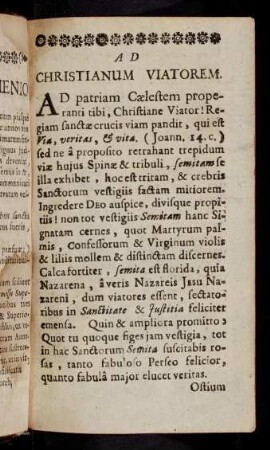 AD
CHRISTIANUM VIATOREM.
AD patriam Cælestem prope-
ranti tibi, Christiane Viator! Re-
giam sanctæ crucis viam pandit, qui est
Via, veritas, & vita. (Joann. 14. c.)
sed ne â proposito retrahant trepidum
viæ hujus Spinæ & tribuli, semitam se
illa exhibet, hoc est tritam, & crebris
Sanctorum vestigiis factam mitiorem.
Ingredere DEO auspice, divisque propi-
tiis! non tot vestigiis Semitam hanc Si-
gnatam cernes, quot Martyrum pal-
mis, Confessorum & Virginum violis
& liliis mollem & distinctam discernes.
Calca fortiter, semita est florida, quia
Nazarena, â veris Nazareis JESU Na-
zareni, dum viatores essent, sectato-
ribus in Sanctitate & Justitia feliciter
emensa. Quin & ampliora promitto:
Quot tu quoque figes jam vestigia, tot
in hac Sanctorum Semita suscitabis ro-
sas, tanto fabuloso Perseo felicior,
quanto fabulâ major elucet veritas.
Ostium